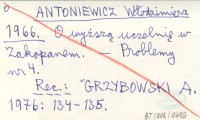 ANTONIEWICZ Włodzimierz
1966. O wyższą uczelnię w
Zakopanem. — Problemy
nr 4.
Rec.: GRZYBOWSKI A.
1976: 134-135.